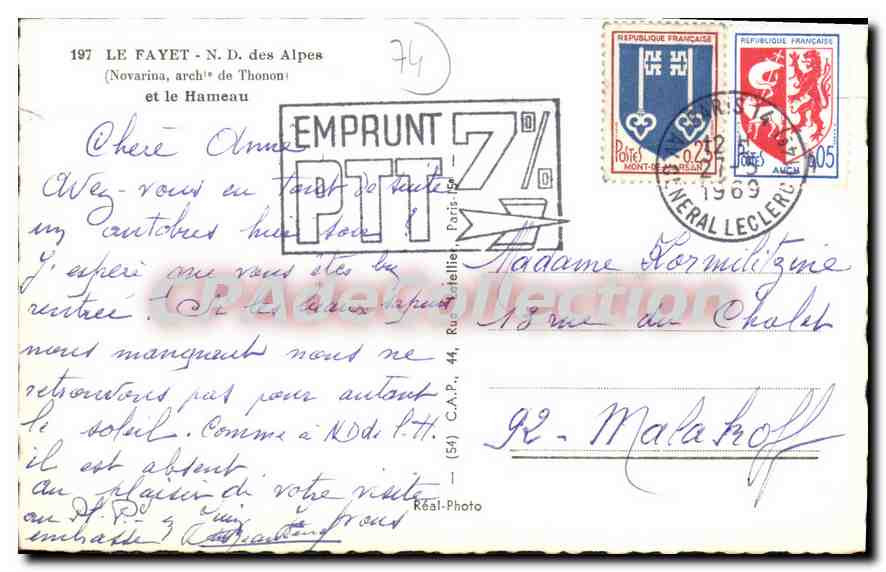 197 LE FAYET - N. D. des Alpes
(Novarina, archte de Thonon)
et le Hameau
74
EMPRUNT
PTT
7%
REPUBLIQUE FRANÇAISE
POSTES 0.25
MONT-DE-MARSAN
REPUBLIQUE FRANÇAISE
Postes 0,05
AUCH
PARIS 14
1969
GENERAL LECLERC
Chère Anne
Avez-vous eu tout de suite
un autobus hier soir !
J'espère que vous êtes bien
rentrée ! Si les beaux
nous manquent nous ne
retrouvons pas pour autant
le soleil. Comme à ND de l'H.
il est absent
au plaisir de votre visite
au
vous
embrasse
Madame Kormilitzine
18 rue du Chalet
92 - Malakoff
(54) C.A.P., 44, Rue Ratellier, Paris-15e
Réal-Photo
CPAdeCollection